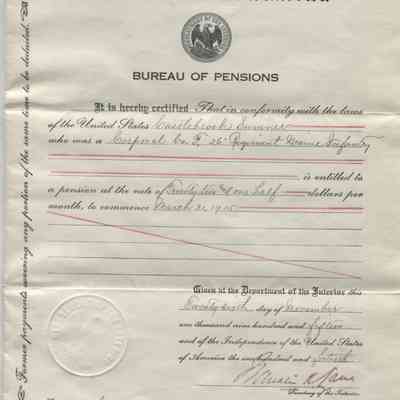 BUREAU OF PENSIONS
It is hereby certified That in conformity with the laws
of the United States Sumner
who was a Corporal Co. F, 26" Regiment Maine Infantry
is entitled to
a pension at the rate of Twenty two & one half dollars per
month, to commence March 2, 1915
Given at the Department of the Interior this
Twenty sixth day of November
one thousand nine hundred and fifteen
and of the Independence of the United States
of America the one hundred and fortieth
Secretary of the Interior.
Former payments covering any portion of the same time to be deducted.